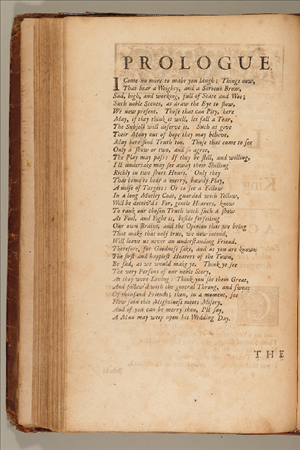 PROLOGUE
I Come no more to make you laugh; Things now,
That bear a Weighty, and a Serious Brow,
Sad, high, and working, full of State and Woe;
Such noble Scenes, as draw the Eye to flow,
We now present. Those that can Pity, here
May, if they think it well, let fall a Tear,
The Subject will deserve it. Such as give
Their Money out of hope they may believe,
May here find Truth too. Those that come to see
Only a show or two, and so agree,
The Play may pass; If they be still, and willing,
I'll undertake may see away their Shilling
Richly in two short Hours. Only they
That come to hear a merry, bawdy Play,
A noise of Targets; Or to see a Fellow
In a long Motley Coat, guarded with Yellow,
Will be deceiv'd: For, gentle Hearers, know
To rank our chosen Truth with such a show
As Fool, and Fight is, beside forfeiting
Our own Brains, and the Opinion that we bring
That make that only true, we now intend,
Will leave us never an understanding Friend.
Therefore, for Goodness sake, and as you are known
The first and happiest Hearers of the Town,
Be sad, as we would make ye. Think ye see
The very Persons of our noble Story,
As they were Living: Think you see them Great,
And follow'd with the general Throng, and sweat
Of thousand Friends; then, in a moment, see
How soon this Mightiness meets Misery;
And if you can be merry then, I'll say,
A Man may weep upon his Wedding Day.
THE